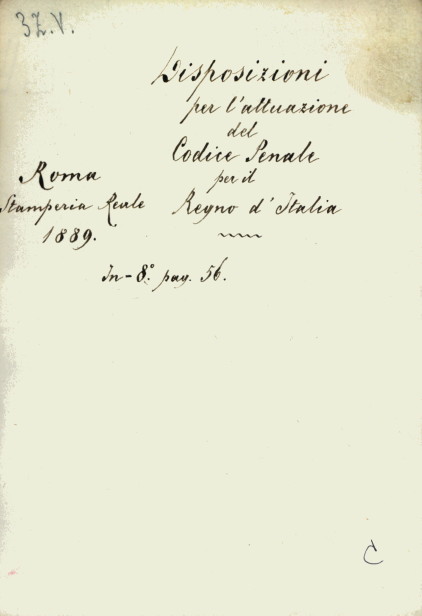 37.V.
Disposizioni
per l'attuazione
del
Codice Penale
per il
Regno d'Italia
Roma
Stamperia Reale
1889.
In-8.° pag. 56.
C